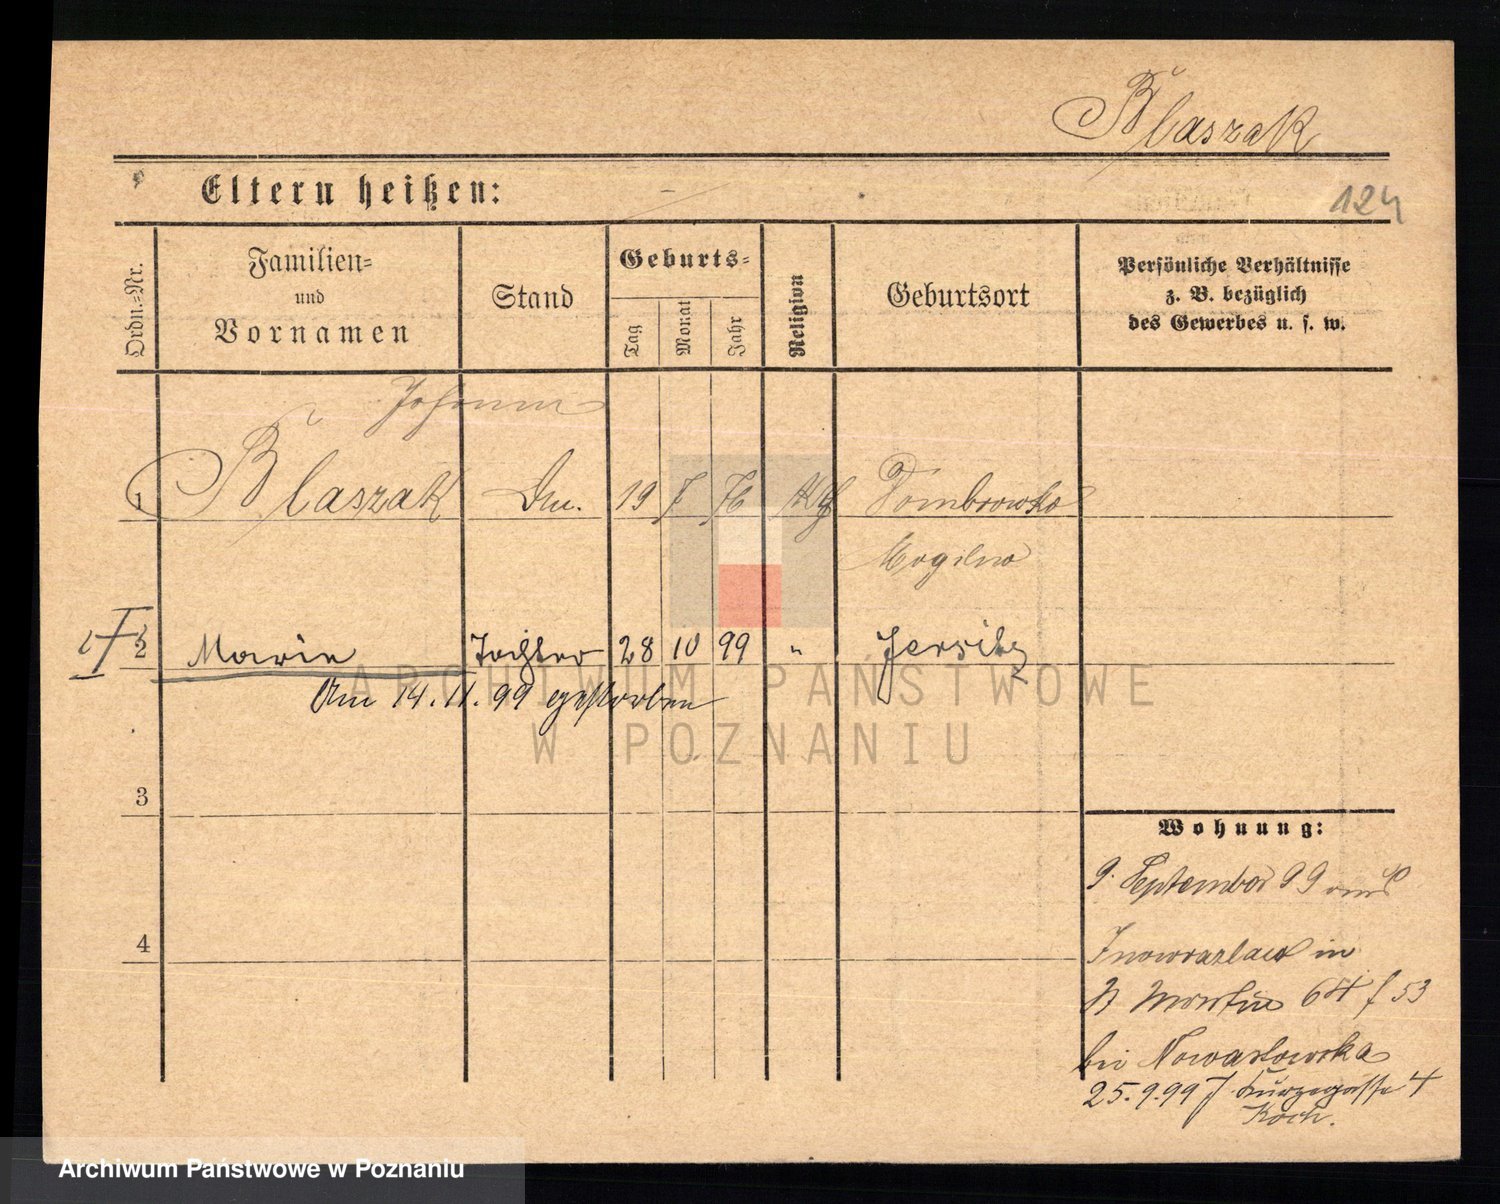 Błaszak
Eltern heißen:
124
Ordn.-Nr.
Familien-
und
Vornamen
Stand
Geburts-
Tag
Monat
Jahr
Religion
Geburtsort
Persönliche Verhältnisse
z. B. bezüglich
des Gewerbes u. s. w.
Johann
1 Błaszak 19 7 76 Dombrowko
Mogilno
2 Marie Tochter 28 10 99 " Jersitz
Am 14.11.99 gestorben
3
Wohnung:
9. September 99 aus
4
Inowrazlaw in
St Martin 64 f 53
bei Nowaslowska
25.9.99 J Kurzegasse 4
Koch.
ARCHIWUM PAŃSTWOWE
W POZNANIU
Archiwum Państwowe w Poznaniu